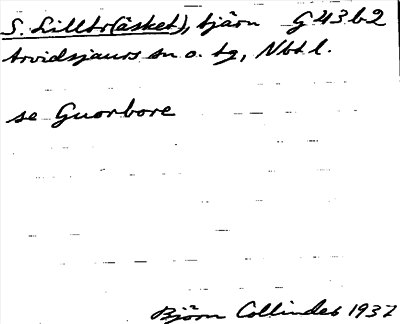 S. Lilltr(äsket), tjärn G43b2
Arvidsjaurs sn o. tg, Nbtl.
se Guorbore
Björn Collinder 1937